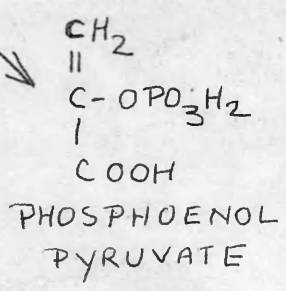 CH2
||
C- OPO3H2
|
COOH
PHOSPHOENOL
PYRUVATE